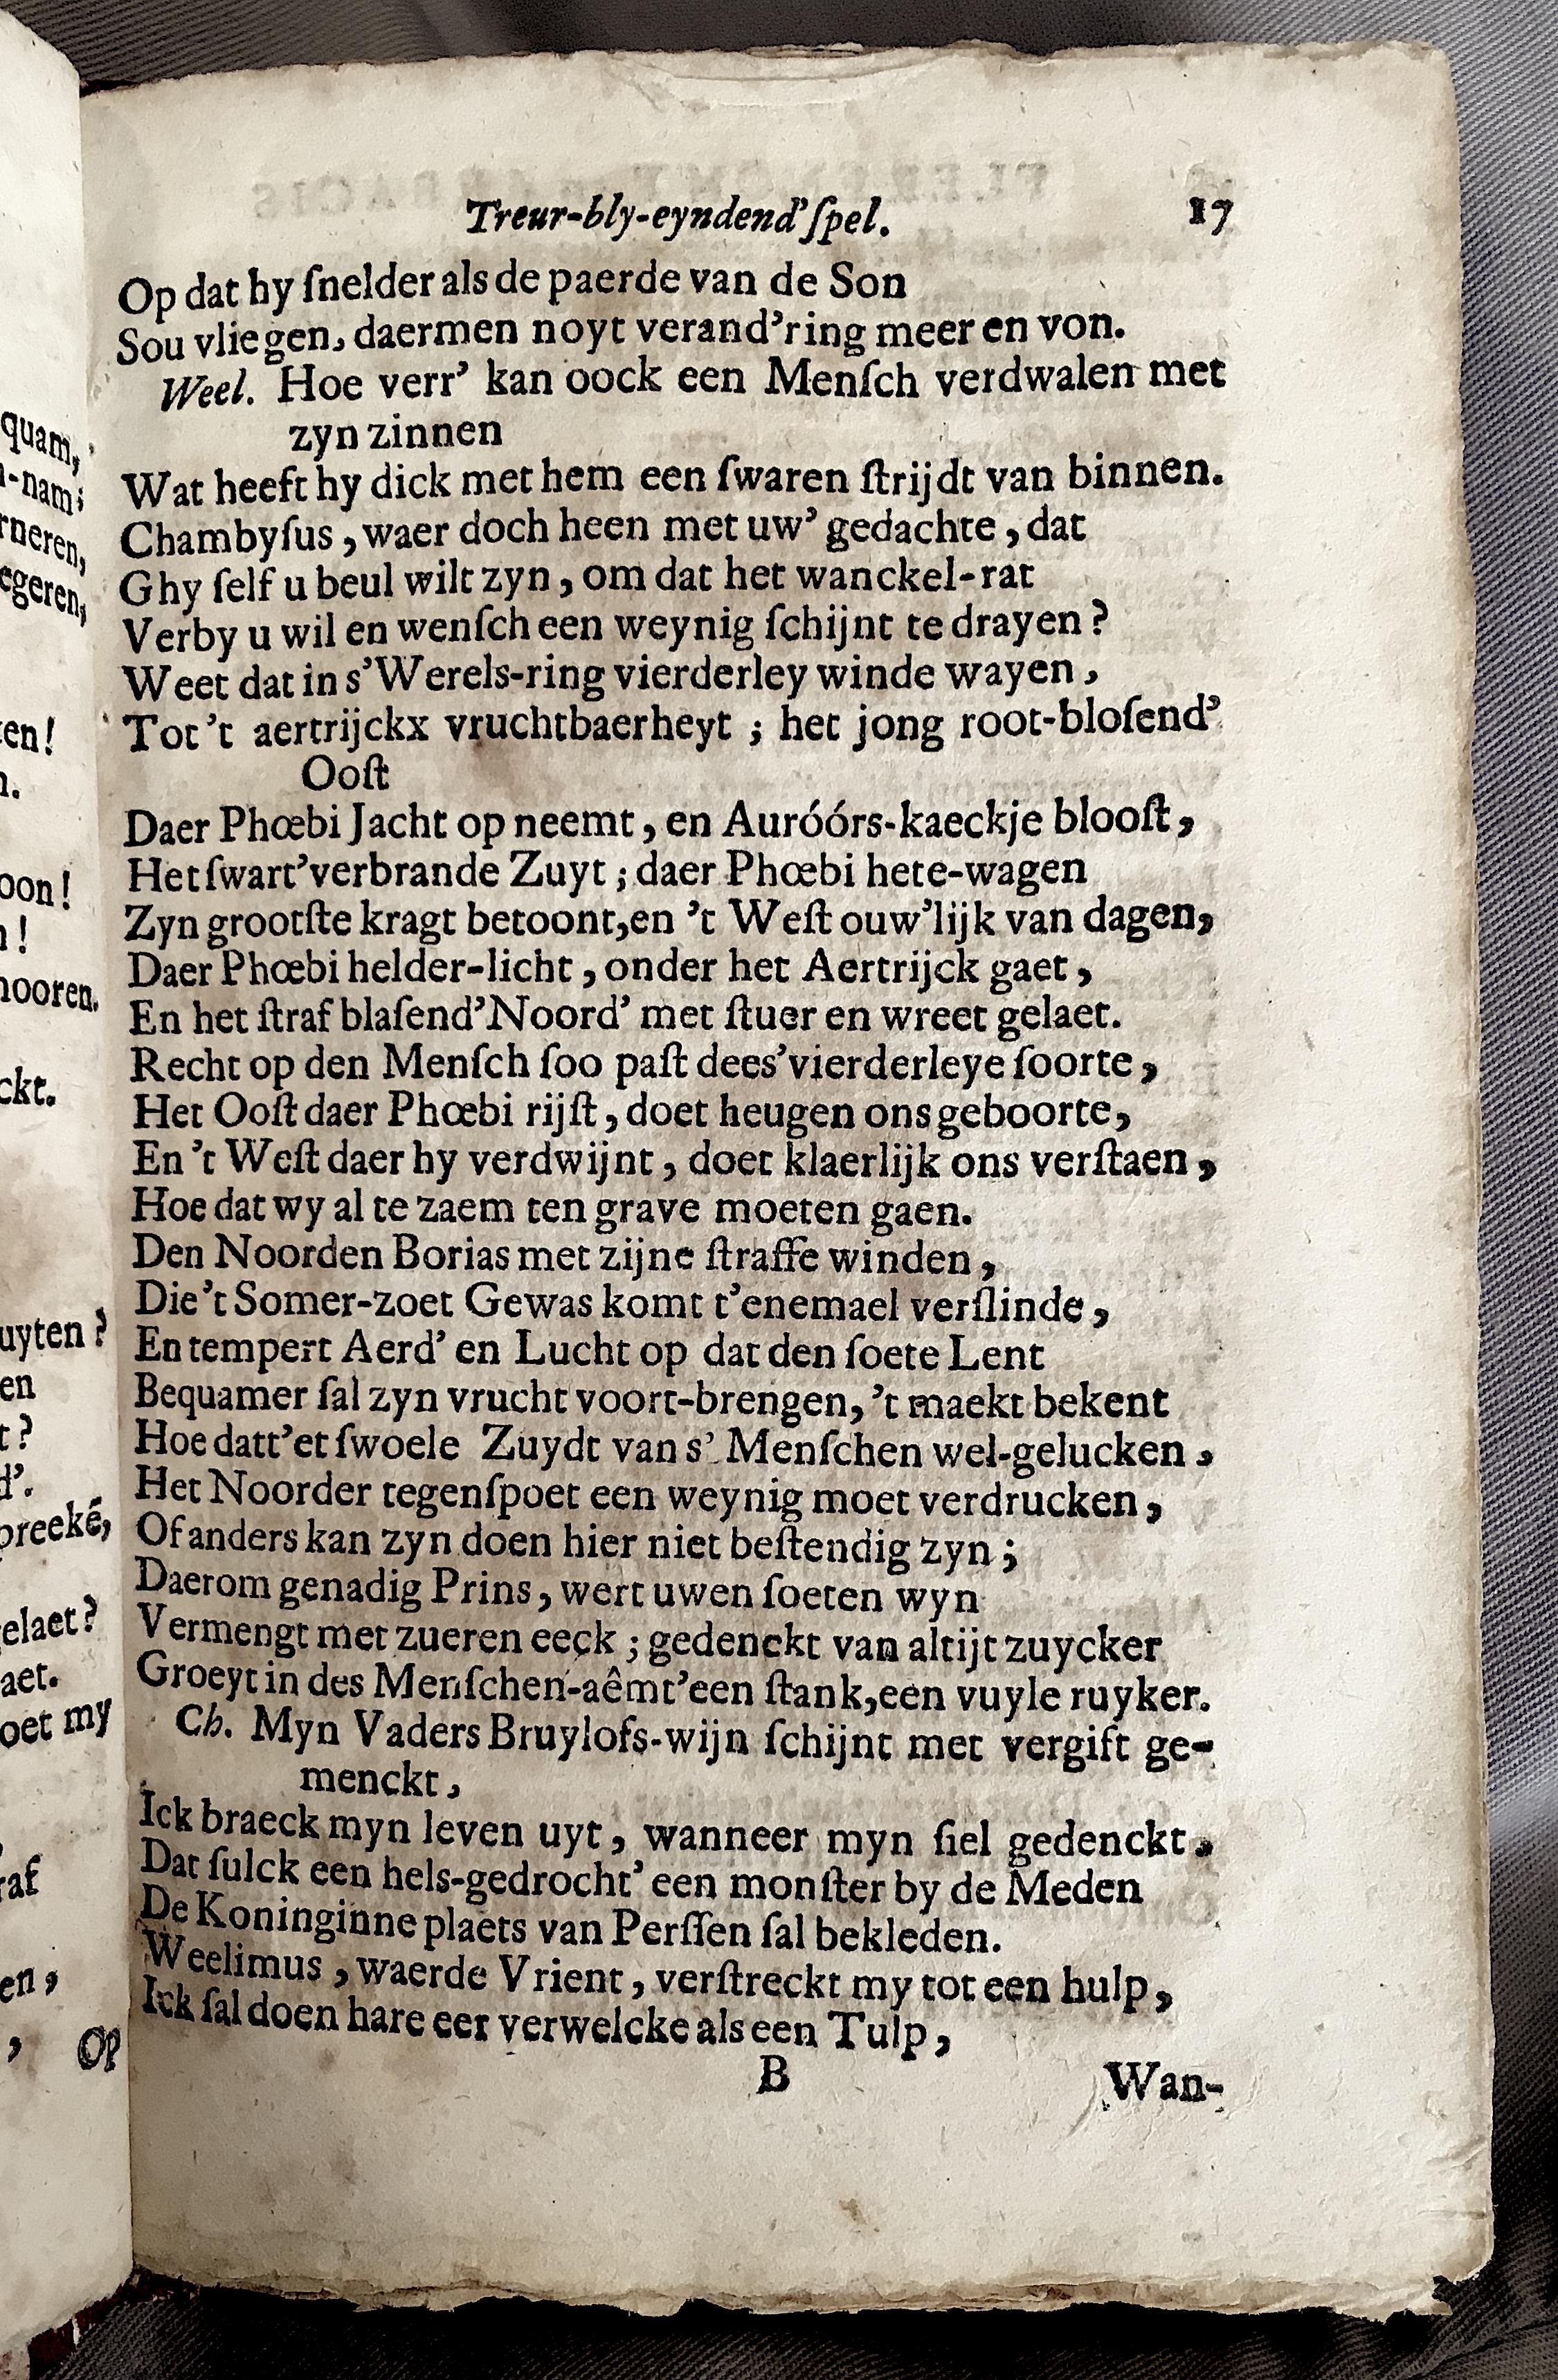 quam,
-nam;
rneren,
egeren,
en!
n.
oon!
n!
hooren.
ckt.
uyten?
en
t?
d'.
preekē,
elaet?
aet.
oet my
raf
en,
,
Op
Treur-bly-eyndend'ſpel.
17
Op dat hy ſnelder als de paerde van de Son
Sou vliegen, daermen noyt verand'ring meer en von.
Weel. Hoe verr' kan oock een Menſch verdwalen met
zyn zinnen
Wat heeft hy dick met hem een ſwaren ſtrijdt van binnen.
Chambyſus, waer doch heen met uw' gedachte, dat
Ghy ſelf u beul wilt zyn, om dat het wanckel-rat
Verby u wil en wenſch een weynig ſchijnt te drayen?
Weet dat in s'Werels-ring vierderley winde wayen,
Tot 't aertrijckx vruchtbaerheyt; het jong root-bloſend'
Ooſt
Daer Phœbi Jacht op neemt, en Auróórs-kaeckje blooſt,
Het ſwart'verbrande Zuyt; daer Phœbi hete-wagen
Zyn grootſte kragt betoont,en 't Weſt ouw'lijk van dagen,
Daer Phœbi helder-licht, onder het Aertrijck gaet,
En het ſtraf blaſend'Noord' met ſtuer en wreet gelaet.
Recht op den Menſch ſoo paſt dees'vierderleye ſoorte,
Het Ooſt daer Phœbi rijſt, doet heugen ons geboorte,
En 't Weſt daer hy verdwijnt, doet klaerlijk ons verſtaen,
Hoe dat wy al te zaem ten grave moeten gaen.
Den Noorden Borias met zijne ſtraffe winden,
Die't Somer-zoet Gewas komt t'enemael verſlinde,
En tempert Aerd' en Lucht op dat den ſoete Lent
Bequamer ſal zyn vrucht voort-brengen, 't maekt bekent
Hoe datt'et ſwoele Zuydt van s' Menſchen wel-gelucken,
Het Noorder tegenſpoet een weynig moet verdrucken,
Of anders kan zyn doen hier niet beſtendig zyn;
Daerom genadig Prins, wert uwen ſoeten wyn
Vermengt met zueren eeck; gedenckt van altijt zuycker
Groeyt in des Menſchen-aêmt'een ſtank,een vuyle ruyker.
Ch. Myn Vaders Bruylofs-wijn ſchijnt met vergift ge-
menckt,
Ick braeck myn leven uyt, wanneer myn ſiel gedenckt,
Dat ſulck een hels-gedrocht' een monſter by de Meden
De Koninginne plaets van Perſſen ſal bekleden.
Weelimus, waerde Vrient, verſtreckt my tot een hulp,
Ick ſal doen hare eer verwelcke als een Tulp,
B
Wan-